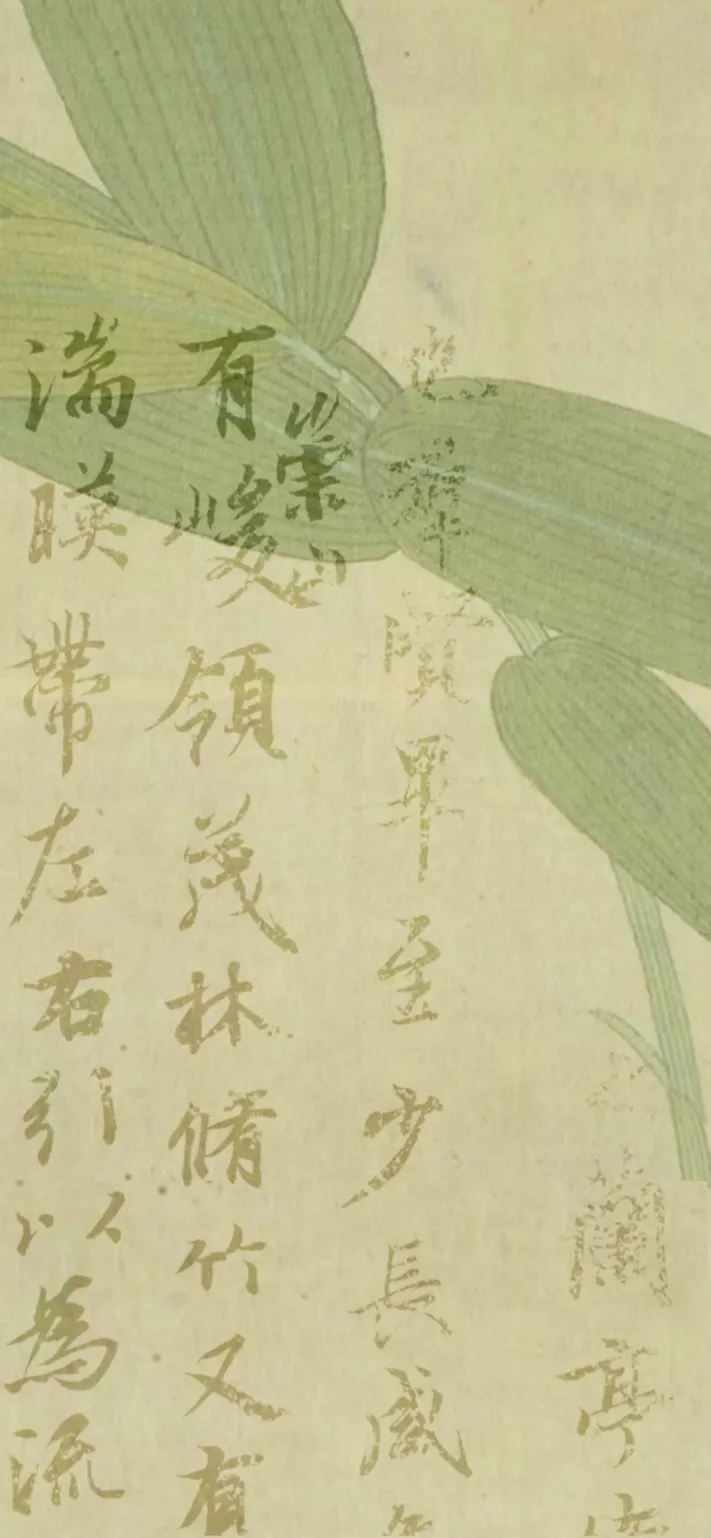 蘭亭
也羣賢畢至少長咸
有崇山峻領茂林脩竹又有
湍暎帶左右引以為流